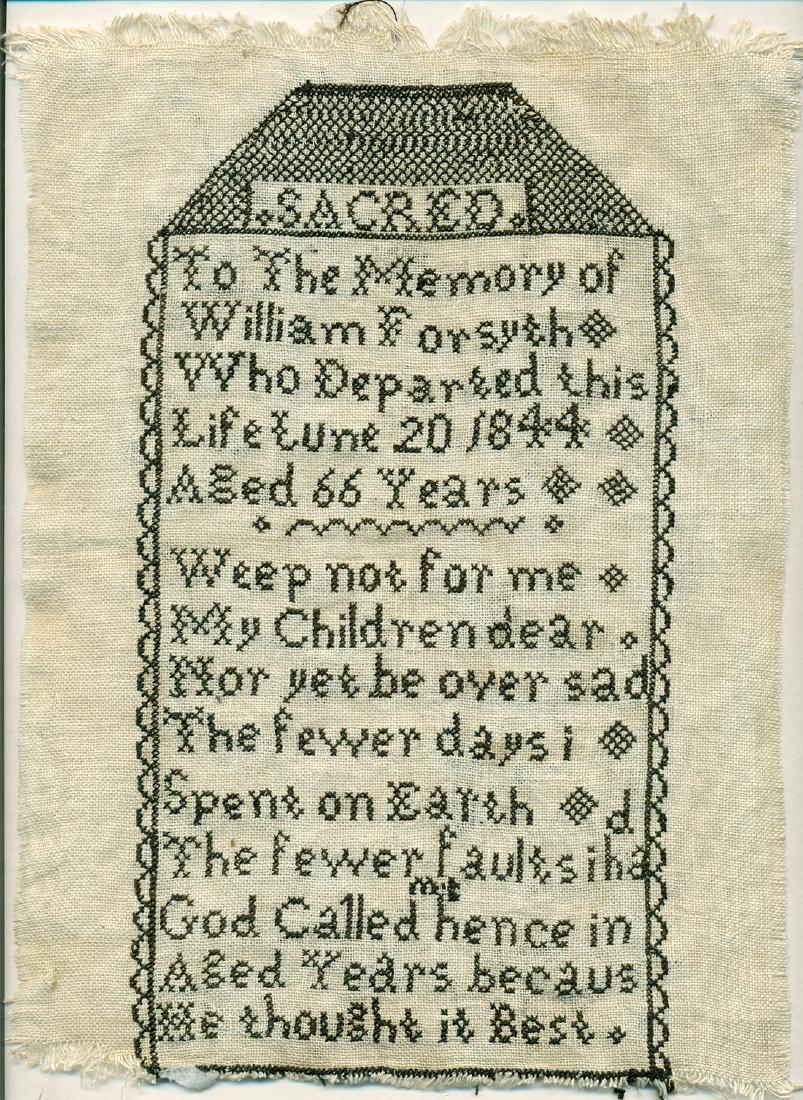 SACRED
To The Memory of
William Forsyth
Who Departed this
Life June 20 1844
Aged 66 Years
Weep not for me
My Children dear
Nor yet be over sad
The fewer days i
Spent on Earth d
The fewer faults i ha
me
God Called hence in
Aged Years becaus
He thought it Best